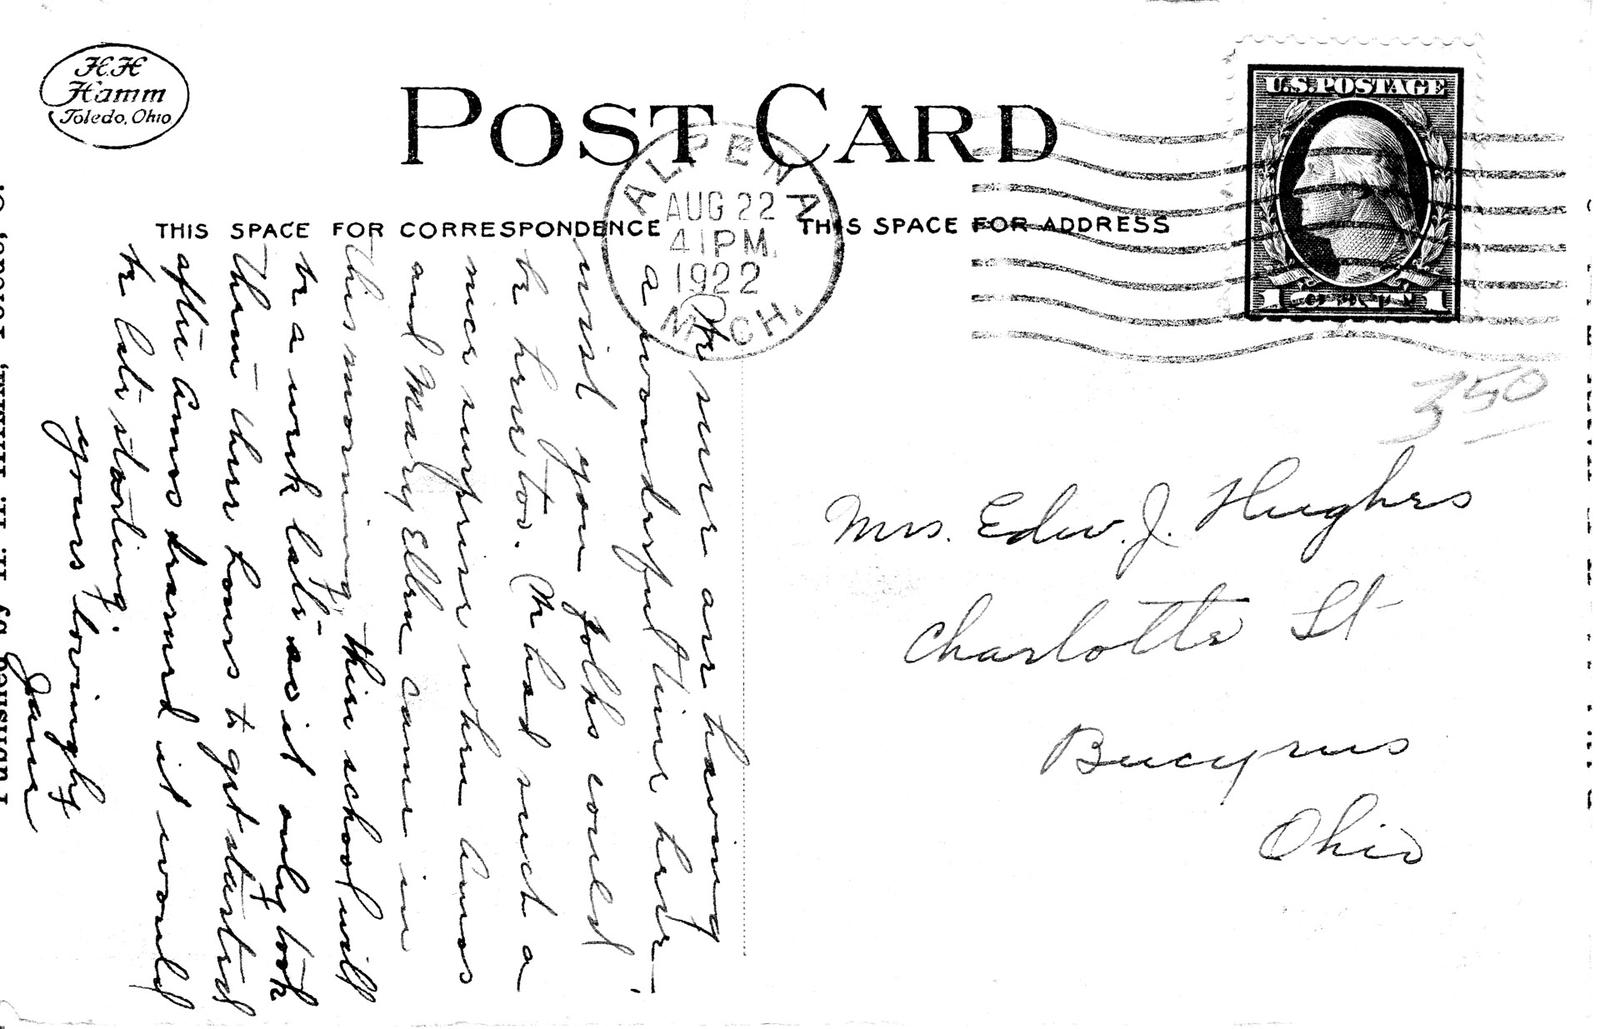 H.H
Hamm
Toledo, Ohio
POST CARD
THIS SPACE FOR CORRESPONDENCE
THIS SPACE FOR ADDRESS
ALPENA
AUG 22
4 1 PM.
1922
MICH.
U.S. POSTAGE
1 CENT 1
350
We sure are having
a wonderful time here -
wish you folks could
be here too. We had such a
nice surprise when Amos
and Mary Ellen came in
this morning, their school will
be a week late so it only took
them three hours to get started
after Amos learned it would
be late starting.
yours lovingly
Jane
Mrs. Edw. J. Hughes
Charlotte St
Bucyrus
Ohio
Published by H. H. Hamm, Toledo, O.